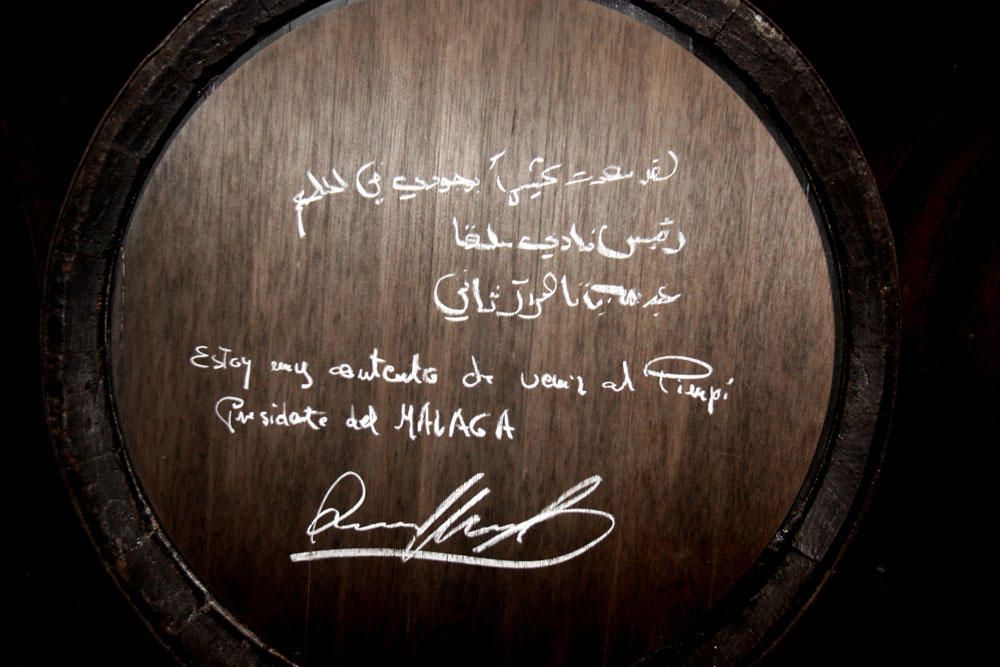 لقد سعدت كثيراً بوجودي في المطعم
رئيس نادي ملقا
عبدالله بن ناصر آل ثاني
Estoy muy contento de venir al Pimpi
Presidente del MALAGA